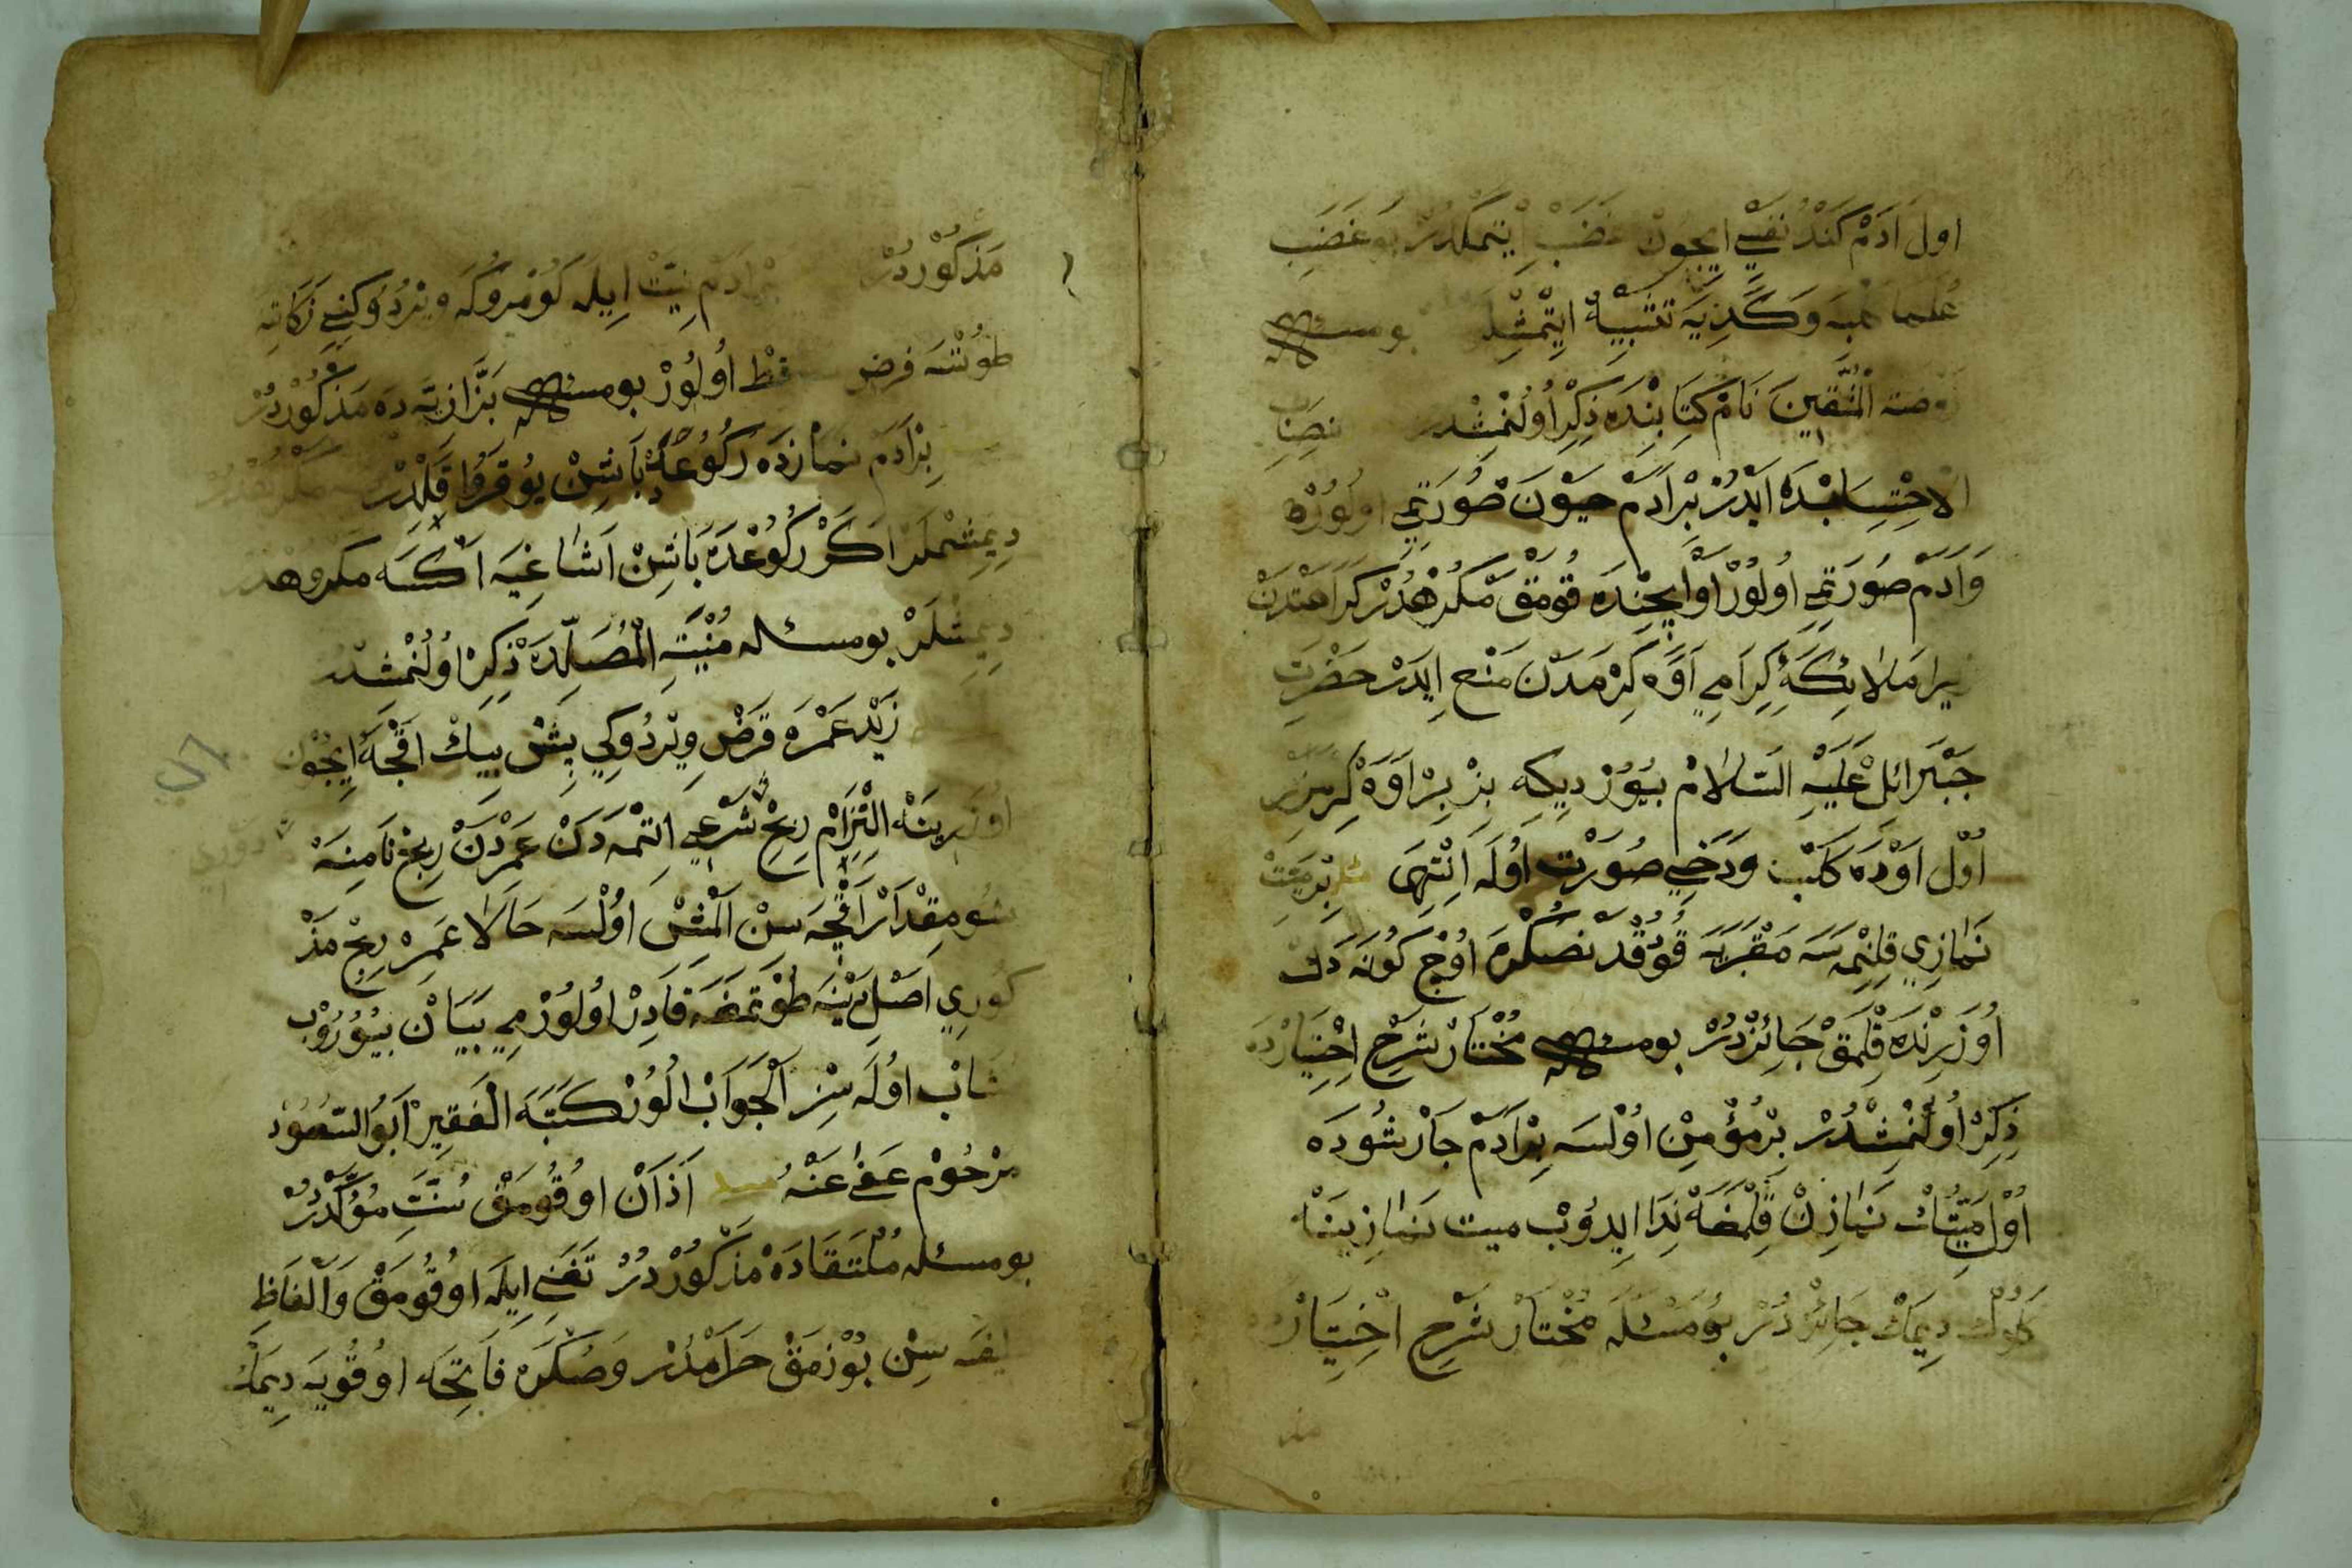 اول آدم كند نفسي ايچون غضب ايتمكدر بو غضب
علما كلبه وكزيه تشبيه ايتمشلر بو مسئله
روضة المتقين نام كتابنده ذكر اولنمشدر نصاب
الاحتساب‌بنده ايدر بر آدم حيون صورتي اولورسه
وآدم صورتي اولور او ايچنده قومق مكرهدر كراهتدن
زيرا ملائكهٔ كرامي اوه كرمدن منع ايدر حضرت
جبرائل عليه السلام بيورديكه بز بر اوه كرمزز
اول اوده كلب ودخي صورت اوله انتهى بر ميت
نمازي قلنمسه مقبريه قودقدنصكره اوچ كونه دك
اوزرنده قلمق جائزدر بو مسئله مختار شرح اختيارده
ذكر اولنمشدر بر مؤمن اولسه بر آدم جارشوده
اول ميتك نمازن قلمغه ندا ايدوب ميت نمازينه
كلوك ديمك جائزدر بو مسئله مختار شرح اختيارده
مذ
مذكوردر بر آدم نيت ايله كومروكه ويردوكني زكاته
طوتسه فرض سقط اولور بو مسئله بزازيه ده مذكوردر
بر آدم نمازده ركوعده باشن يوقرو قلدر مكرهدر
ديمشلر اكر ركوعده باشن اشاغيه اكسه مكروهدر
ديمشلر بو مسئله منية المصليده ذكر اولنمشدر
زيد عمره قرض ويردوكي بش بيك اقچه ايچون
اوزرينه التزام ربح شرعي اتمدن عمردن ربح نامنه
شو مقدار اقچه سن المش اولسه حالا عمر ربح مذ
كوري اصل دينه طوتمغه قادر اولورمي بيان بيوروب
مثاب اوله سز الجواب الور كتبه الفقير ابو السعود
مرحوم عفي عنه اذان اوقومق سنت مؤكددر
بو مسئله ملتقاده مذكوردر تغني ايله اوقومق والفاظ
سن بوزمق حرامدر وصكره فاتحه اوقويه ديمك